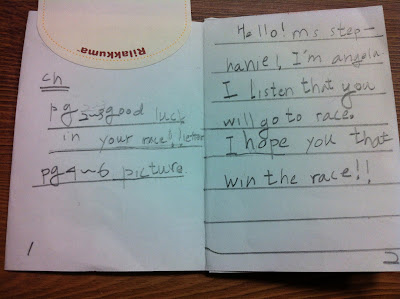 Rilakkuma™
ch
pg 2~3 good luck
in your race!! letter
pg 4~6 picture.
1
Hello! ms. step-
hanie!, I'm angela.
I listen that you
will go to race.
I hope you that
win the race!!
2